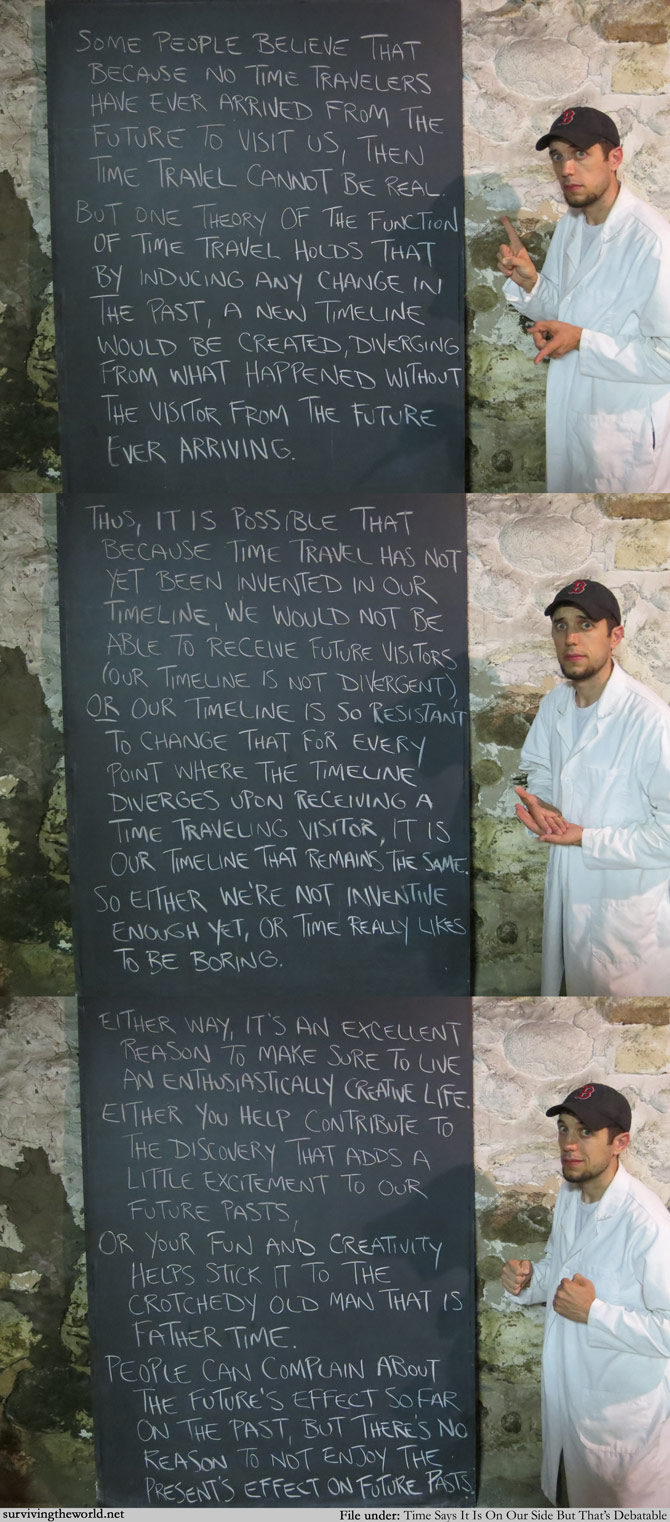 SOME PEOPLE BELIEVE THAT
BECAUSE NO TIME TRAVELERS
HAVE EVER ARRIVED FROM THE
FUTURE TO VISIT US, THEN
TIME TRAVEL CANNOT BE REAL.
BUT ONE THEORY OF THE FUNCTION
OF TIME TRAVEL HOLDS THAT
BY INDUCING ANY CHANGE IN
THE PAST, A NEW TIMELINE
WOULD BE CREATED, DIVERGING
FROM WHAT HAPPENED WITHOUT
THE VISITOR FROM THE FUTURE
EVER ARRIVING.
B
THUS, IT IS POSSIBLE THAT
BECAUSE TIME TRAVEL HAS NOT
YET BEEN INVENTED IN OUR
TIMELINE, WE WOULD NOT BE
ABLE TO RECEIVE FUTURE VISITORS
(OUR TIMELINE IS NOT DIVERGENT),
OR OUR TIMELINE IS SO RESISTANT
TO CHANGE THAT FOR EVERY
POINT WHERE THE TIMELINE
DIVERGES UPON RECEIVING A
TIME TRAVELING VISITOR, IT IS
OUR TIMELINE THAT REMAINS THE SAME.
SO EITHER WE'RE NOT INVENTIVE
ENOUGH YET, OR TIME REALLY LIKES
TO BE BORING.
B
EITHER WAY, IT'S AN EXCELLENT
REASON TO MAKE SURE TO LIVE
AN ENTHUSIASTICALLY CREATIVE LIFE.
EITHER YOU HELP CONTRIBUTE TO
THE DISCOVERY THAT ADDS A
LITTLE EXCITEMENT TO OUR
FUTURE PASTS,
OR YOUR FUN AND CREATIVITY
HELPS STICK IT TO THE
CROTCHEDY OLD MAN THAT IS
FATHER TIME.
PEOPLE CAN COMPLAIN ABOUT
THE FUTURE'S EFFECT SO FAR
ON THE PAST, BUT THERE'S NO
REASON TO NOT ENJOY THE
PRESENT'S EFFECT ON FUTURE PASTS.
B
survivingtheworld.net
File under: Time Says It Is On Our Side But That's Debatable